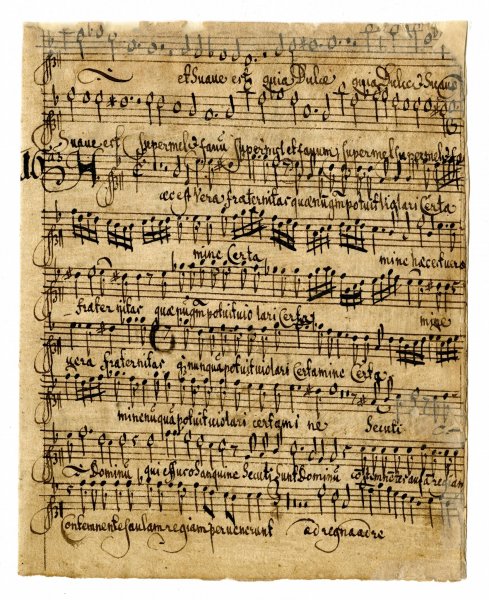 et Suave est quia Dulce quia Dulce & Suave
Suave est Super mel & favũ super mel et favum super mel super mel &
Hæc est Vera fraternitas quæ nunqm̃ potuit violari Certa
mine Certa mine hæc est vera
fraternitas quæ nuqm̃ potuit vio lari Certa mine
vera fraternitas q nunquã potuit violari Certamine Certa
mine nuquã potuit violari certami ne Secuti
Dominũ qui effuso Sanguine Secuti sunt Dominũ
Contemnentes aulam regiam pervenerunt ad regna ad re